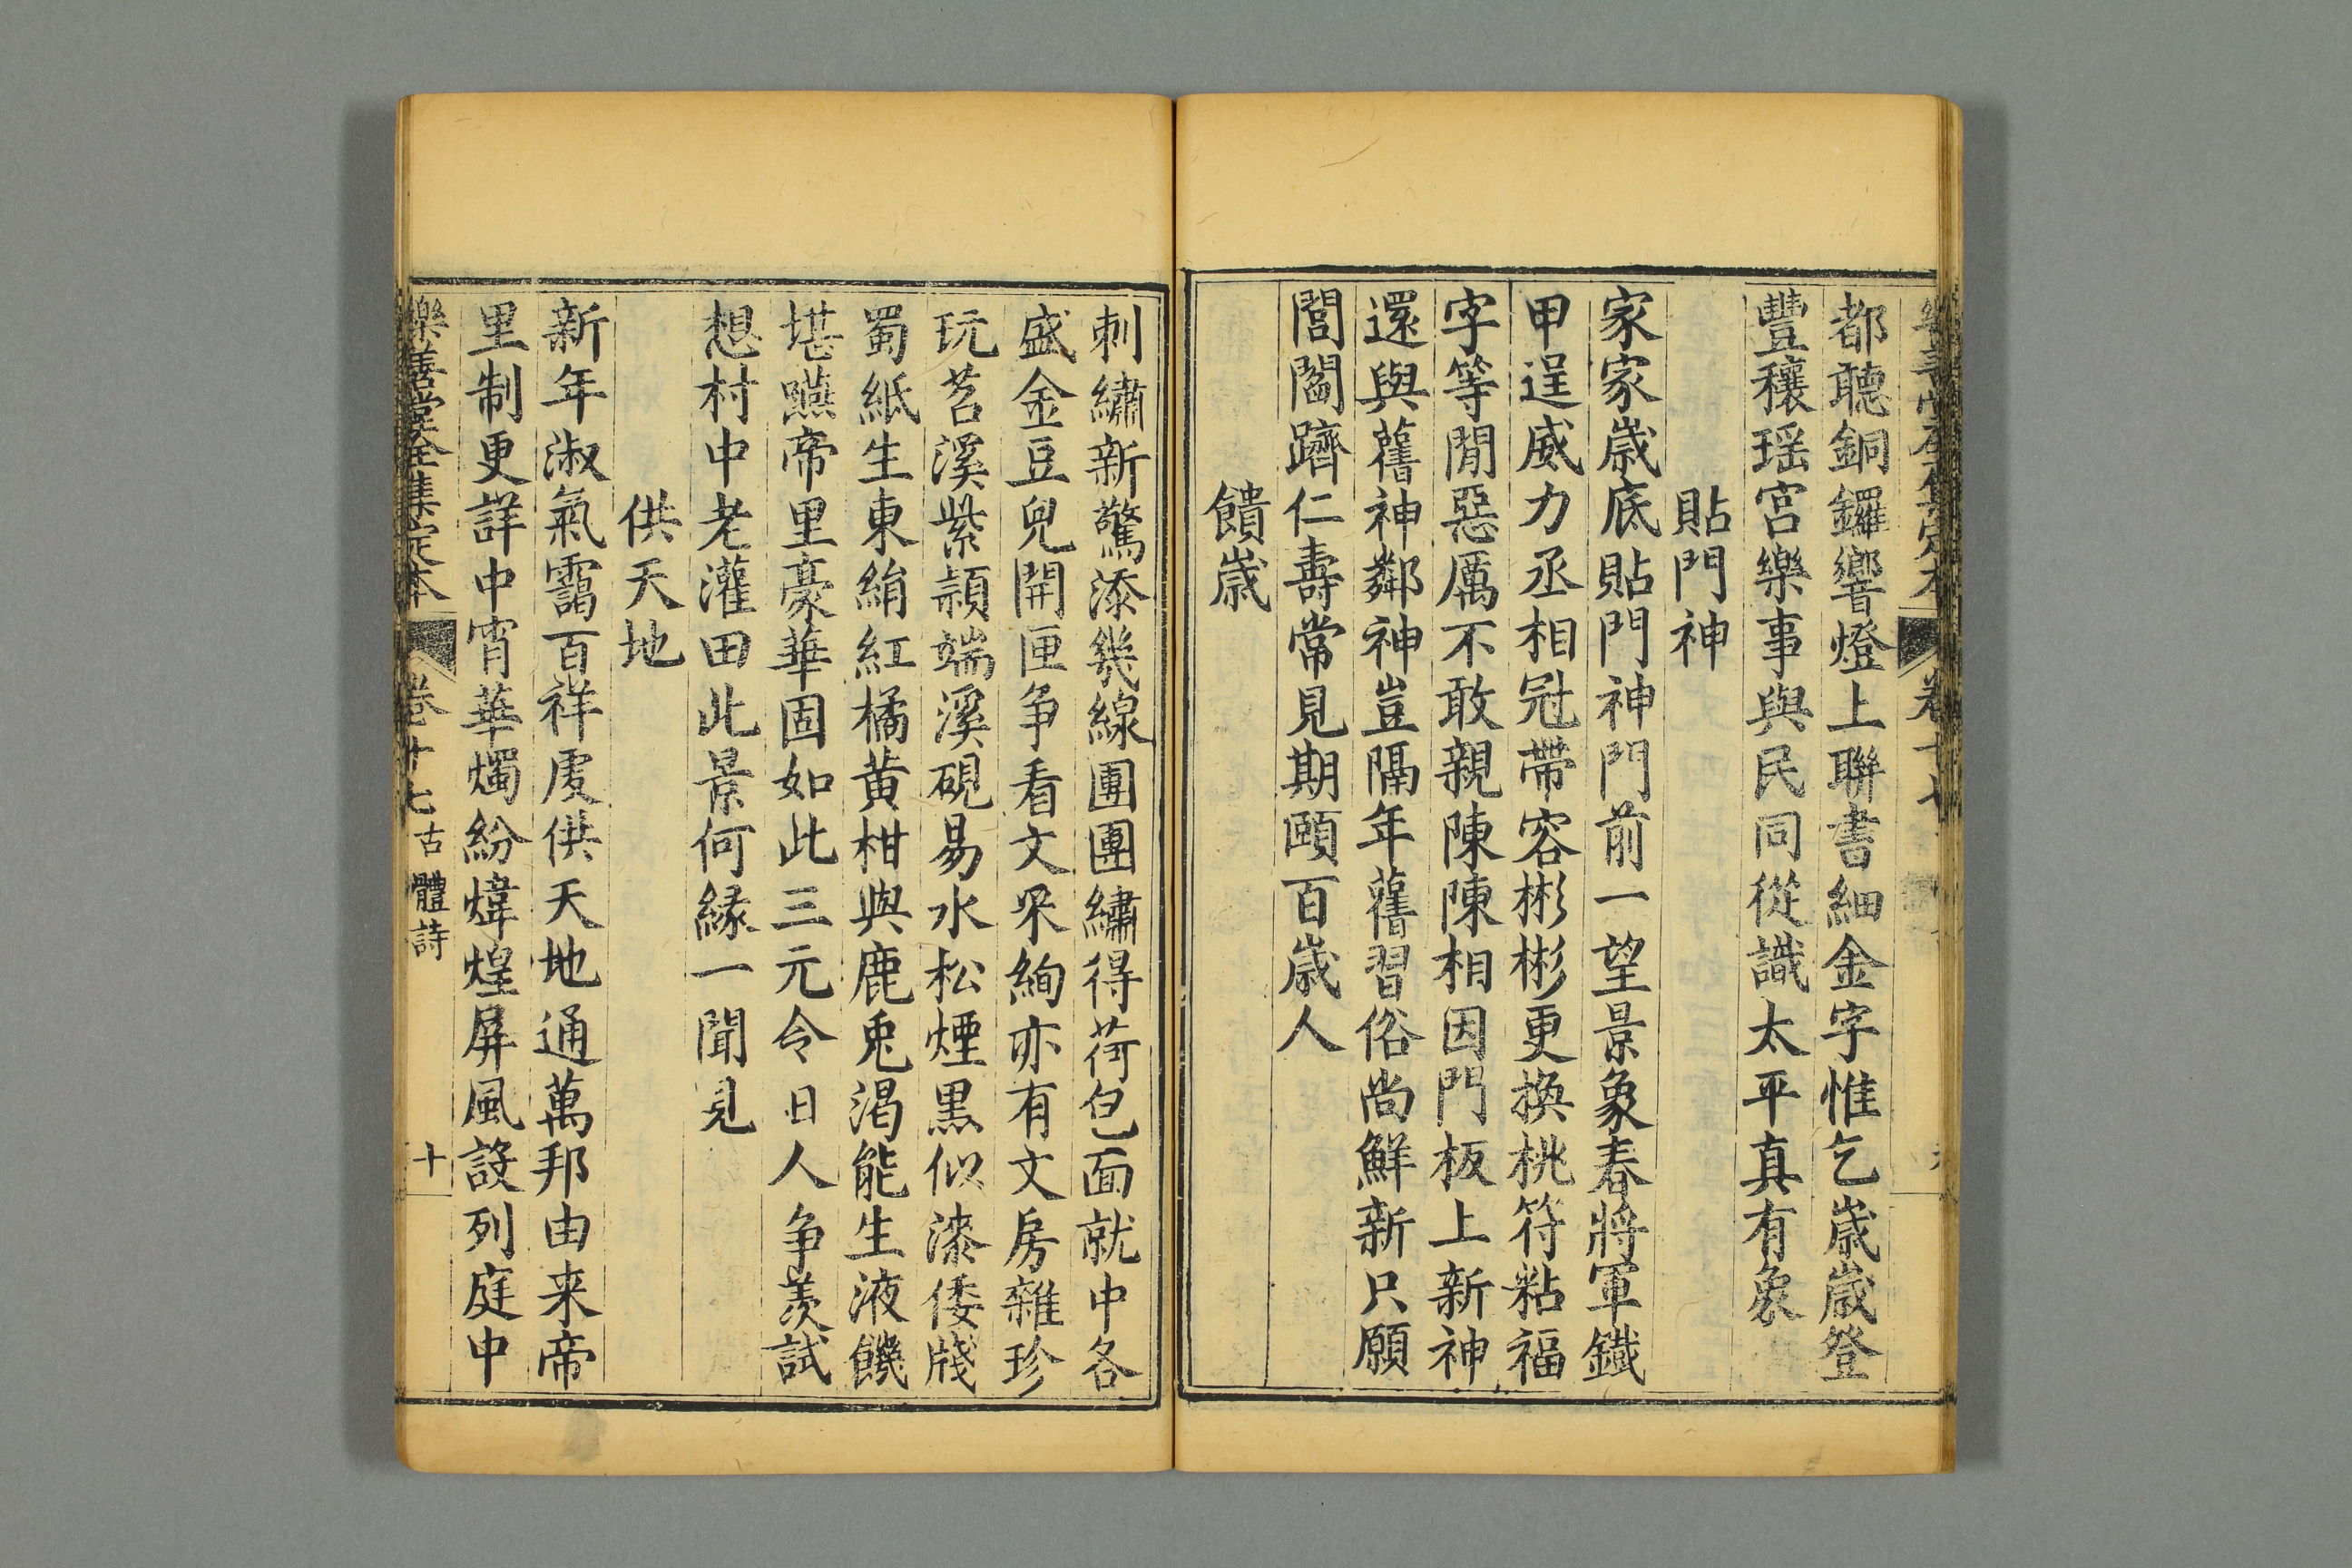 都聽銅鑼響燈上聯書細金字惟乞歲歲登
豐穰瑶宮樂事與民同從識太平真有象
貼門神
家家歲底貼門神門前一望景象春將軍鐵
甲逞威力丞相冠帶容彬彬更換桃符粘福
字等閒惡厲不敢親陳陳相因門板上新神
還與舊神鄰神豈隔年舊習俗尚鮮新只願
閭閻躋仁壽常見期頤百歲人
饋歲
刺繡新驚添幾線團團繡得荷包面就中各
盛金豆兒開匣争看文采絢亦有文房雜珍
玩苕溪紫穎端溪硯易水松煙黑似漆倭牋
蜀紙生東絹紅橘黄柑與鹿兎渴能生液饑
堪嚥帝里豪華固如此三元令日人争羡試
想村中老灌田此景何緣一聞見
供天地
新年淑氣靄百祥虔供天地通萬邦由来帝
里制更詳中宵華燭紛煒煌屏風設列庭中
樂善堂全集定本 卷十七 古體詩 十